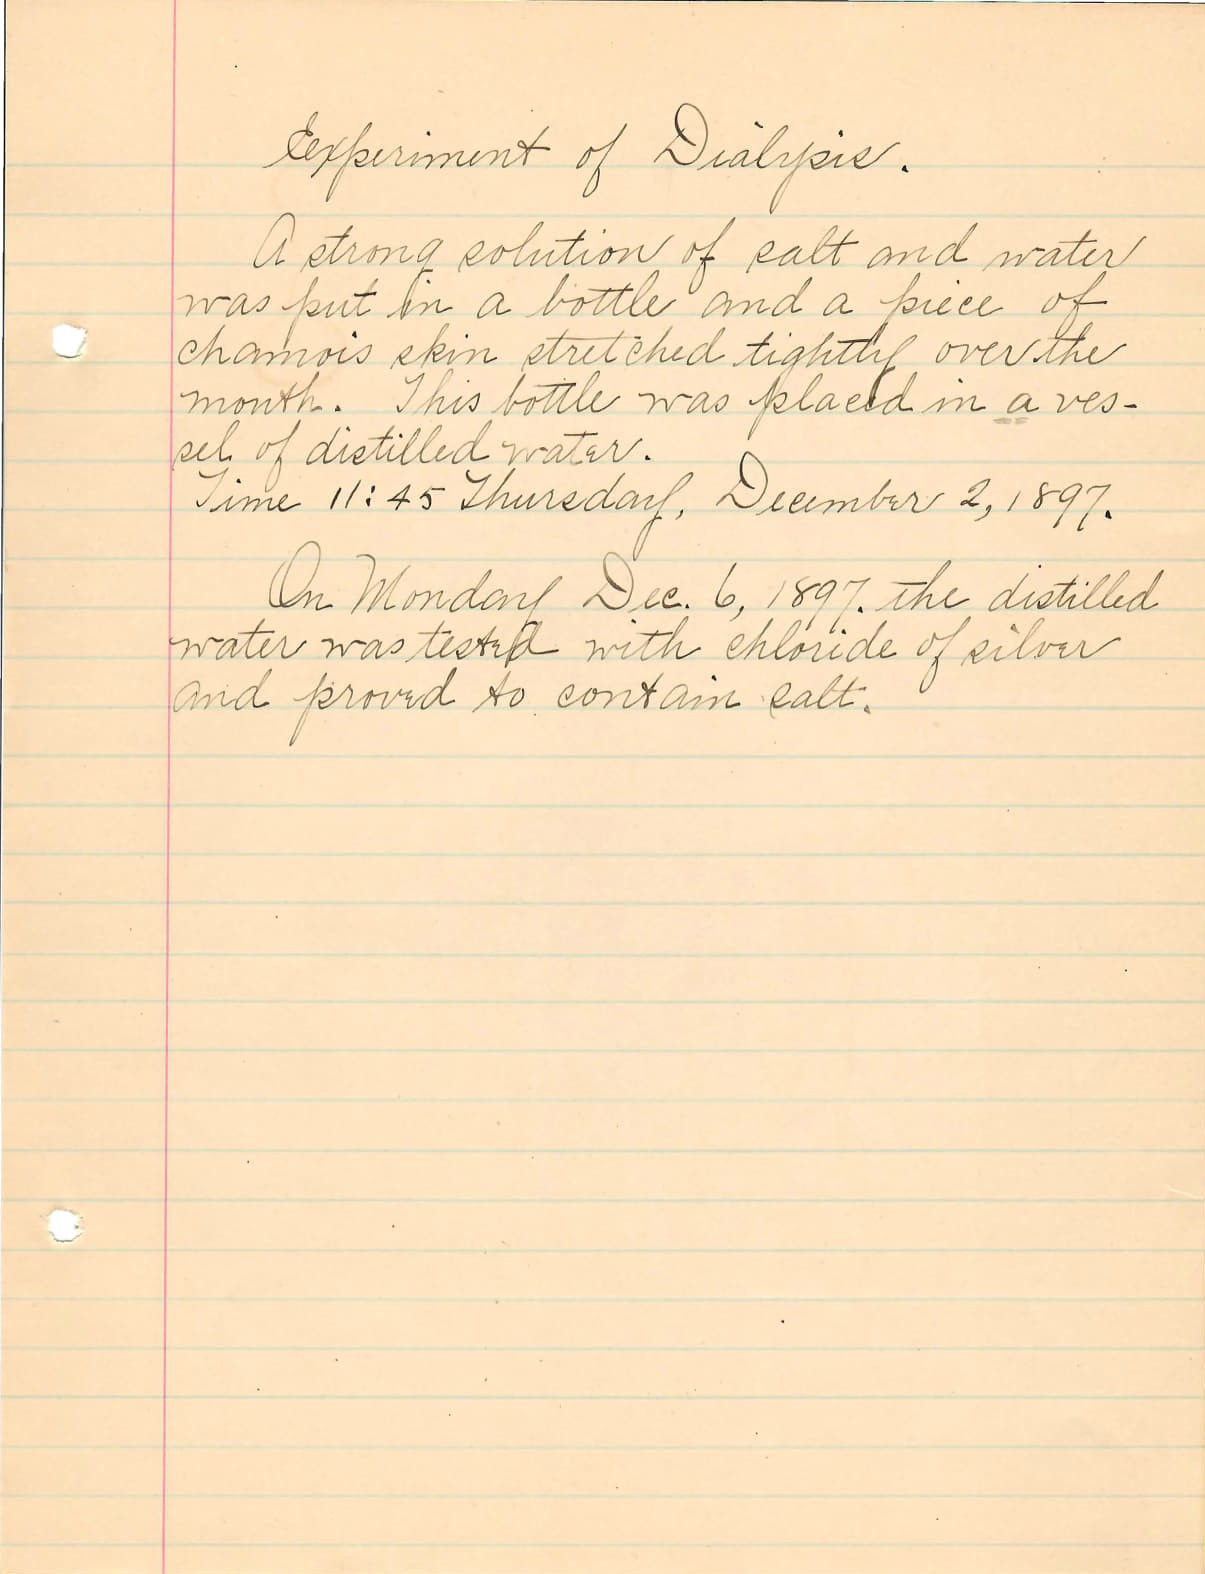 Experiment of Dialysis.
A strong solution of salt and water
was put in a bottle and a piece of
chamois skin stretched tightly over the
mouth. This bottle was placed in a ves-
sel of distilled water.
Time 11:45 Thursday, December 2, 1897.
On Monday Dec. 6, 1897. the distilled
water was tested with chloride of silver
and proved to contain salt.